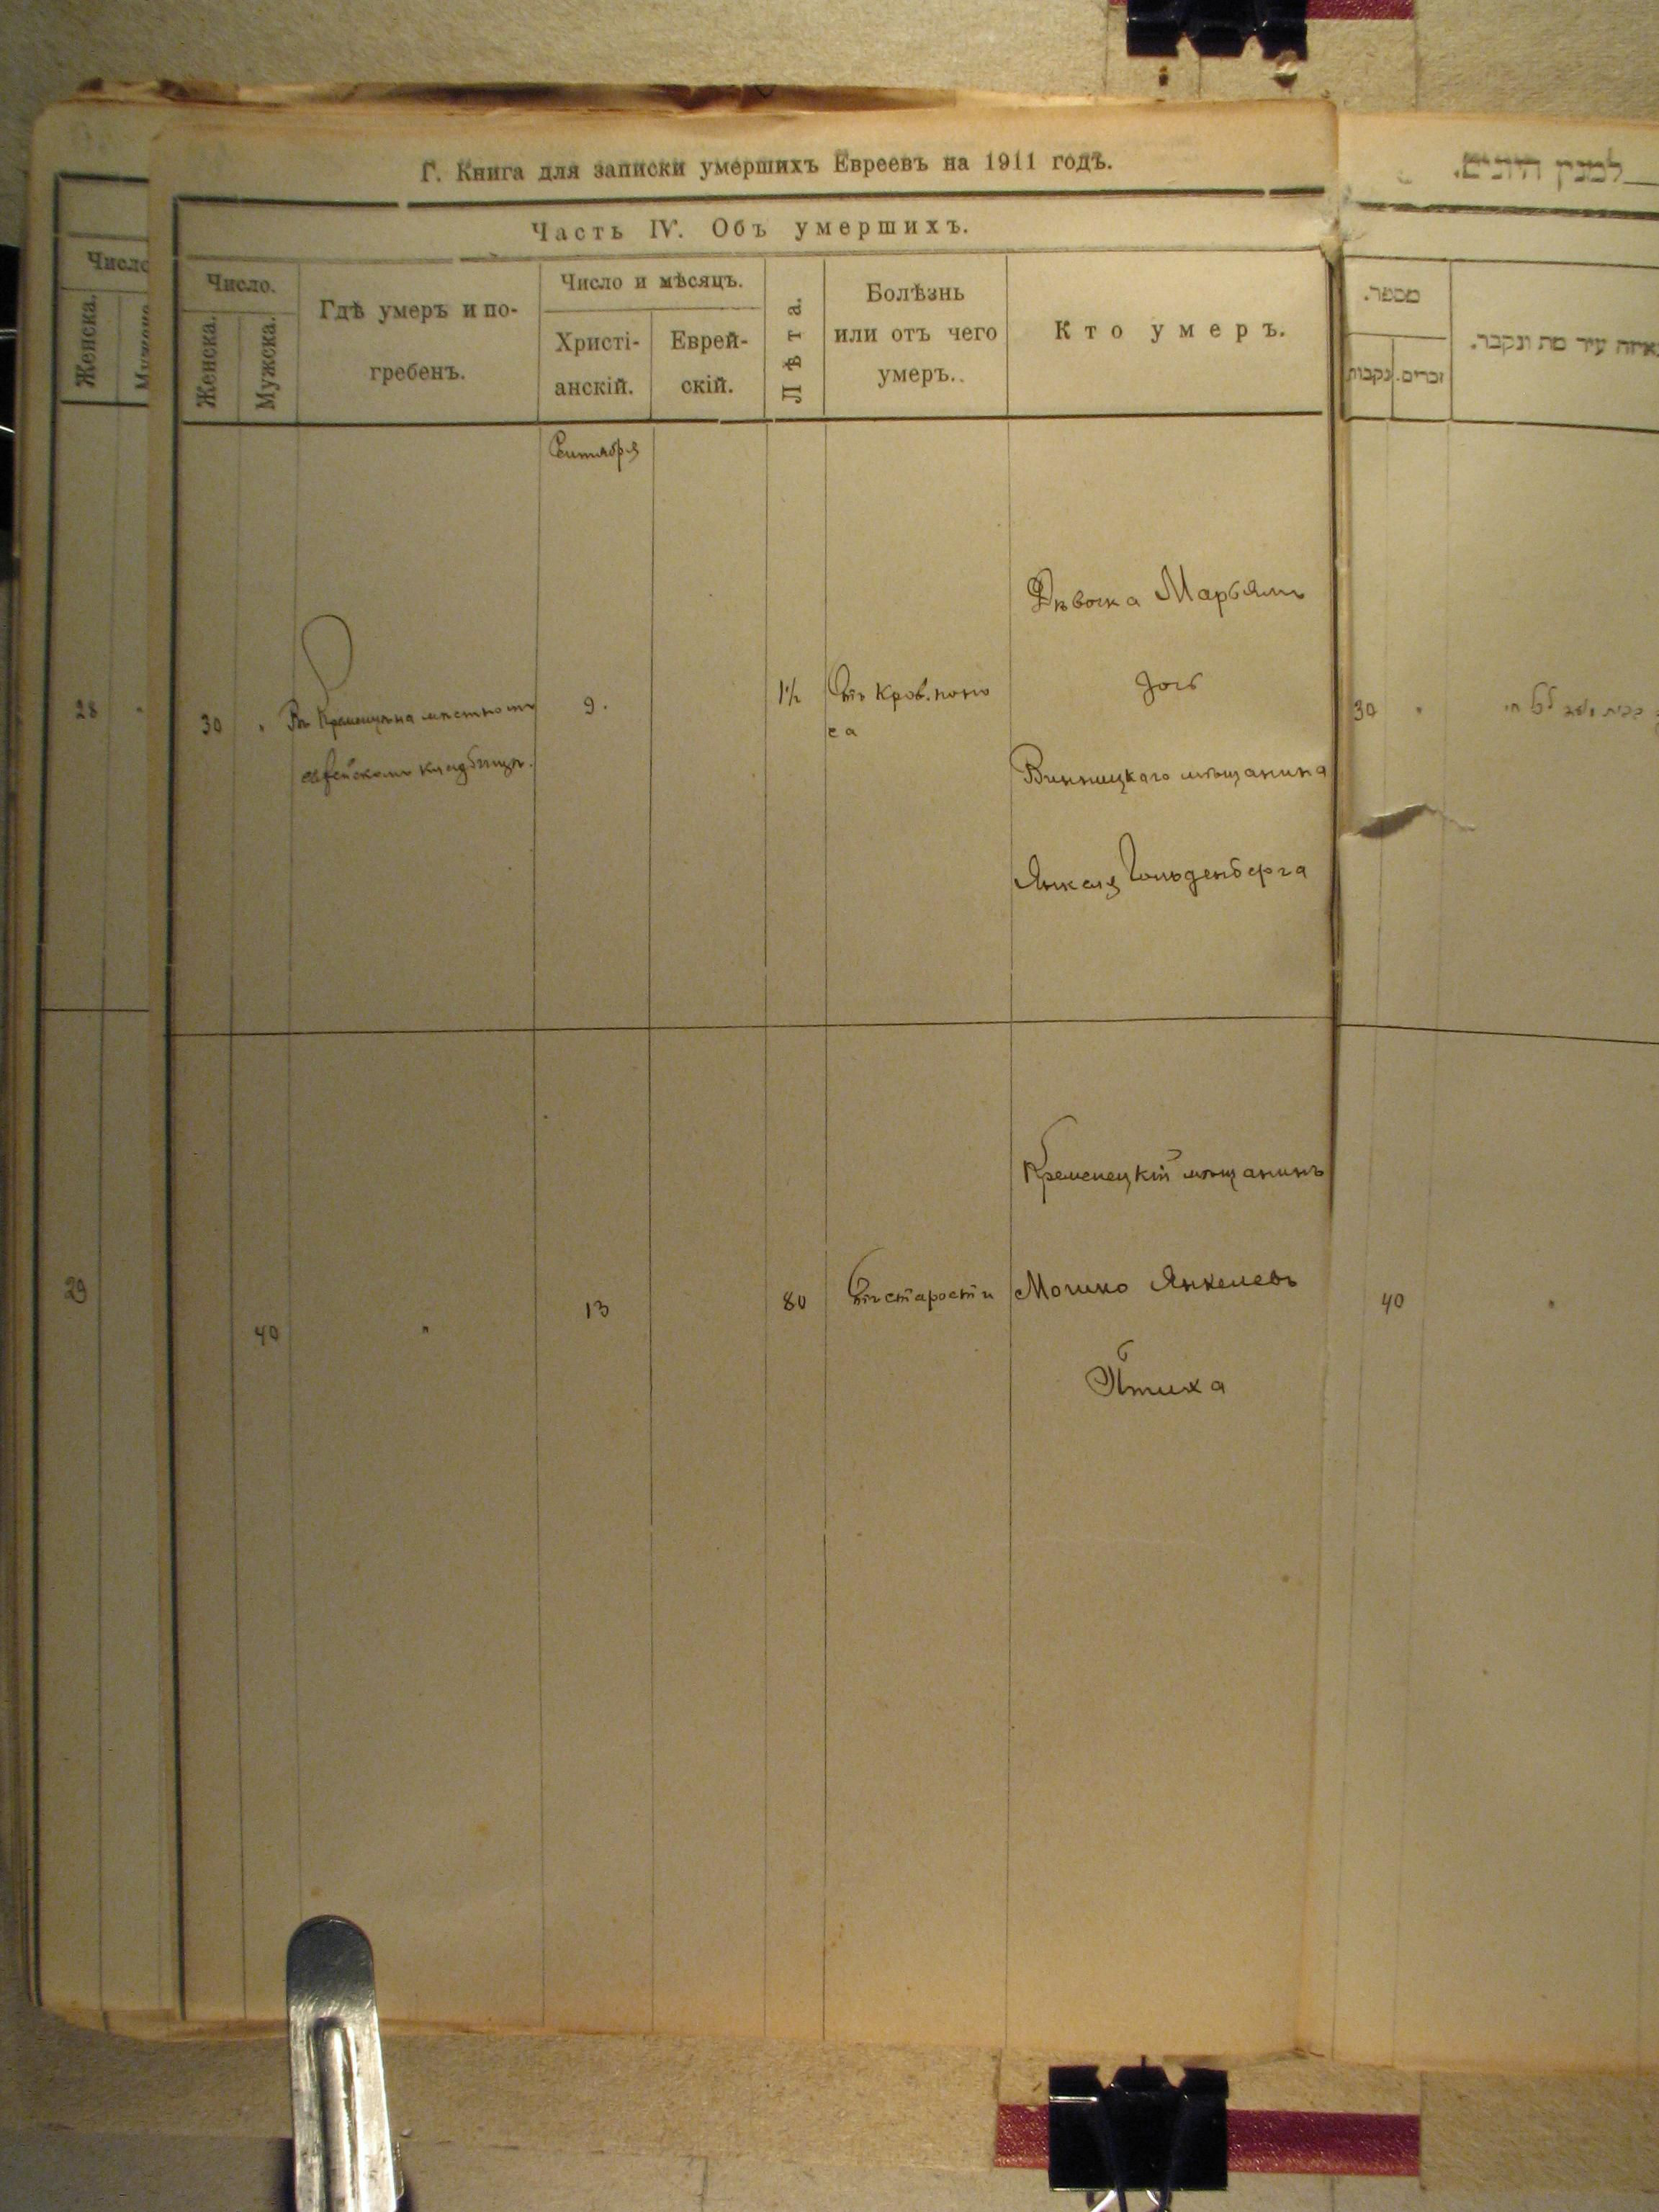 Г. Книга для записки умершихъ Евреевъ на 1911 годъ.
Часть IV. Объ умершихъ.
Число
Женска.
Число.
Женска.
Мужска.
Гдѣ умеръ и по-
гребенъ.
Число и мѣсяцъ.
Христі-
анскій.
Еврей-
скій.
Лѣта.
Болѣзнь
или отъ чего
умеръ.
Кто умеръ.
מספר.
נקבות
זכרים.
עיר מת ונקבר.
Сентября
28
30
"
Въ Кременцѣ на мѣстномъ
еврейскомъ кладбищѣ.
9.
1½
Отъ кров. поно
са
Дѣвочка Марьямъ
дочь
Винницкаго мѣщанина
Янкеля Гольденберга
30
"
29
40
"
13
80
Отъ старости
Кременецкій мѣщанинъ
Мошко Янкелевъ
Птиха
40
"